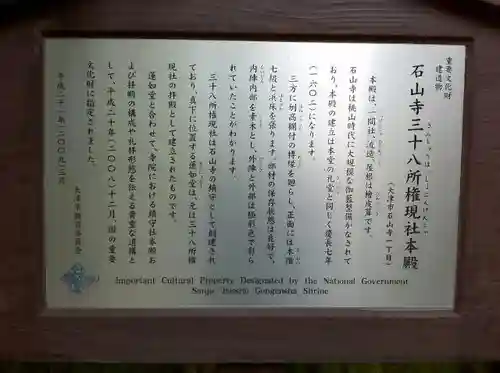 重要文化財
建造物
石山寺三十八所権現社本殿
(大津市石山寺一丁目)
本殿は、一間社、流造、屋根は檜皮葺です。
石山寺は桃山時代に大規模な伽藍整備がなされて
おり、本殿の建立は本堂の礼堂と同じく慶長七年
(一六〇二)になります。
三方に刎高欄付の榑縁を廻らし、正面には木階
七級と浜床を張ります。部材の保存状態は良好で、
内陣内部を素木とし、外陣と外部は極彩色で彩ら
れていたことがわかります。
三十八所権現社は石山寺の鎮守として創建され
ており、真下に位置する蓮如堂は、元は三十八所権
現社の拝殿として建立されたものです。
蓮如堂と合わせて、寺院における鎮守社本殿お
よび拝殿の構成や礼拝形態を伝える貴重な遺構と
して、平成二十年(二〇〇八)十二月、国の重要
文化財に指定されました。
平成二十一年(二〇〇九)三月
大津市教育委員会
Important Cultural Property Designated by the National Government
Gongensha Shrine